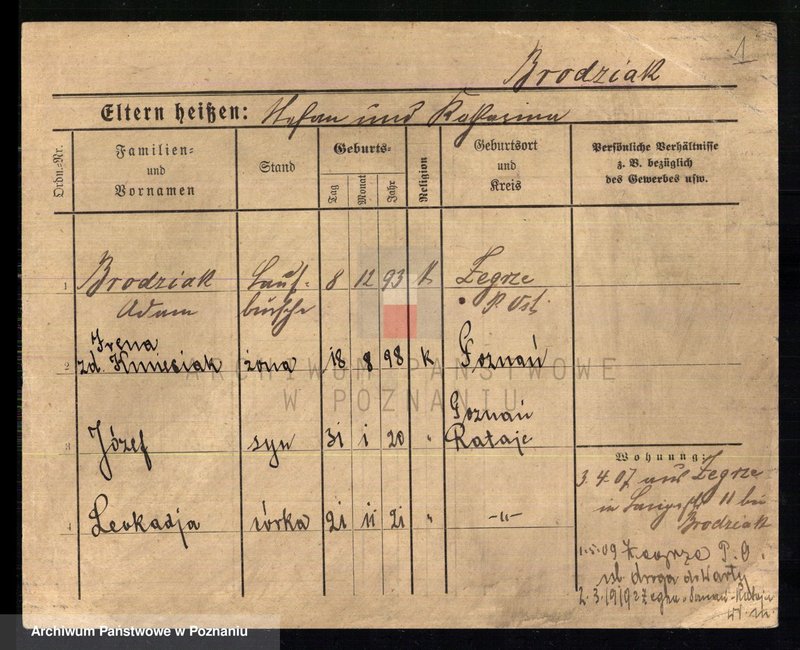 1
Brodziak
Eltern heißen: Stefan und Katharina
Ordn.-Nr.
Familien-
und
Vornamen
Stand
Geburts-
Tag
Monat
Jahr
Religion
Geburtsort
und
Kreis
Persönliche Verhältnisse
z. B. bezüglich
des Gewerbes usw.
1 Brodziak Lauf- 8 12 93 K Zegrze
Adam bursche P. Ost.
Irena
2 zd. Kmieciak żona 18 8 98 K Poznań
Poznań
3 Józef syn 31 1 20 " Rataje
4 Leokadja córka 21 11 21 " -"-
Wohnung:
3.4.07 aus Zegrze
in 11 bei
Brodziak
1.5.09 P. O.
droga do Warty
2.3.1919 Rataje
ARCHIWUM PAŃSTWOWE
W POZNANIU
Archiwum Państwowe w Poznaniu